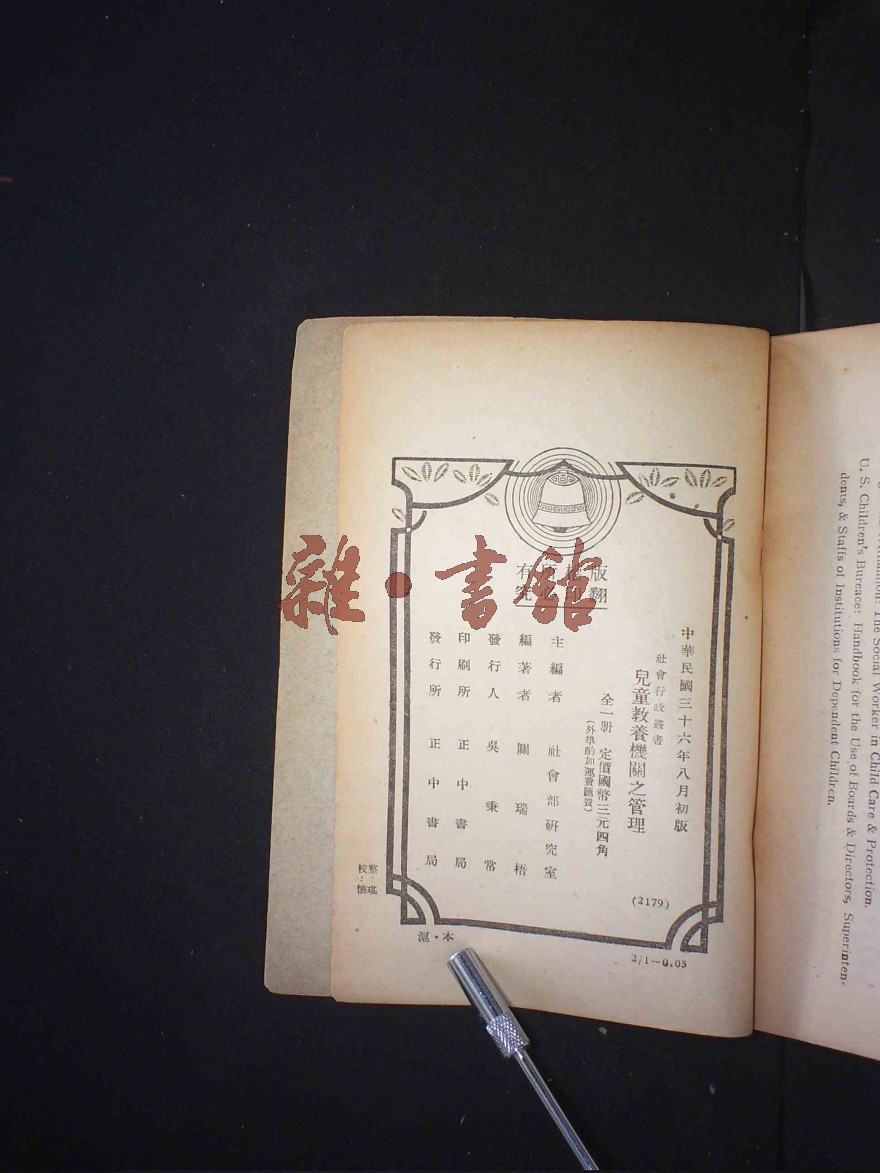 中華民國三十六年八月初版
社會行政叢書
兒童教養機關之管理
(2179)
全一册 定價國幣三元四角
(外埠酌加運費匯費)
版
有
翻
究
主編者 社會部研究室
編著者 關瑞梧
發行人 吳秉常
印刷所 正中書局
發行所 正中書局
校：
滬・本
2/1—0.05
雜・書館
The Social Worker in Child Care & Protection.
U. S. Children's Bureace: Handbook for the Use of Boards & Directors, Superinten-
dents, & Staffs of Institutions for Dependent Children.